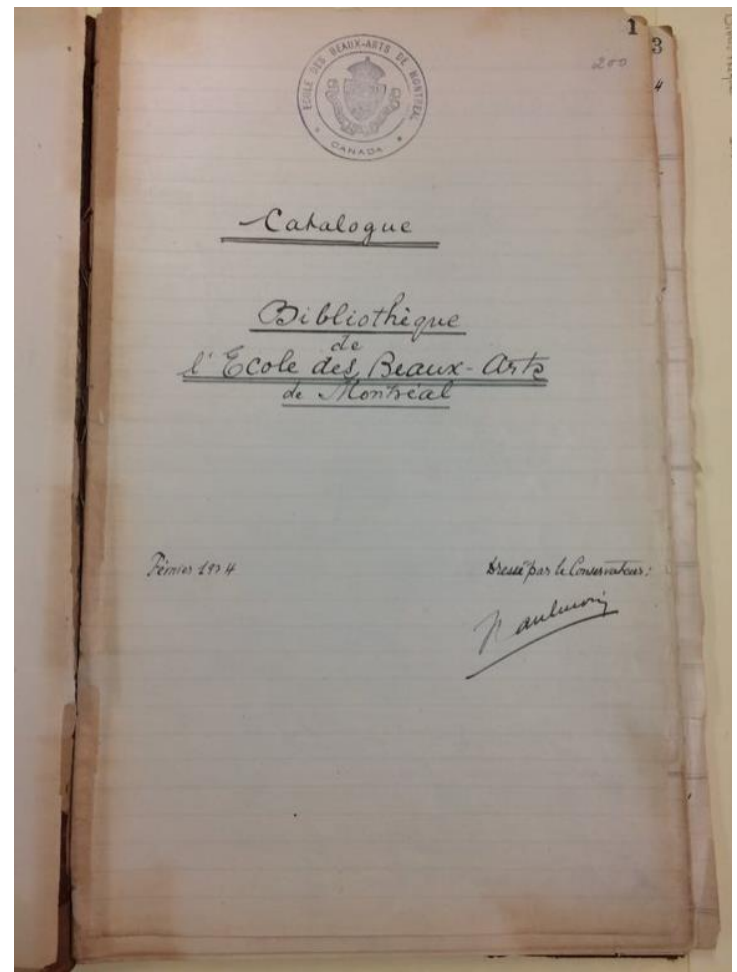 1
3
200
4
ECOLE DES BEAUX-ARTS DE MONTREAL
CANADA
Catalogue
Bibliothèque
de
l'Ecole des Beaux-Arts
de Montréal
Février 1924
Dressé par le Conservateur:
Paul Morin